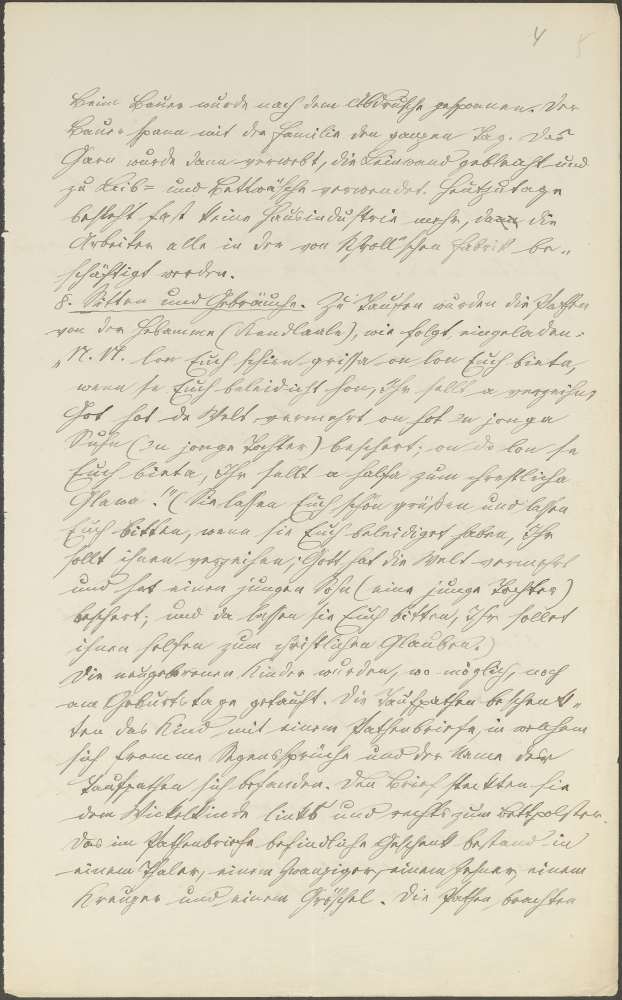 4
beim Bauer wurde nach dem Abdrusche gesponnen. Der
Bauer spann mit der Familie den ganzen Tag. Das
Garn wurde dann verwebt, die Leinwand gebleicht und
zu Leib= und Bettwäsche verwendet. Heutzutage
besteht fast keine Hausindustrie mehr, die
Arbeiter alle in der von Kroll'schen Fabrik be„
schäftigt werden.
8. Sitten und Gebräuche. Zu Taufen wurden die Pathen
von der Hebamme (Kendlaale), wie folgt, eingeladen:
„N. N. lon Euch schien grissa on lon Euch bieta,
wenn se Euch beleidicht hon, Ihr sellt a verzeihn;
Got hot de Welt vermehrt on hot en jonga
Suhn (en jonge Tochter) beschert; on do lon se
Euch bieta, Ihr sellt a halfa zum chrestlicha
Glawa!" (Sie lassen Euch schön grüßen und lassen
Euch bitten, wenn sie Euch beleidiget haben, Ihr
sollt ihnen verzeihen; Gott hat die Welt vermehrt
und hat einen jungen Sohn (eine junge Tochter)
beschert; und da lassen sie Euch bitten, Ihr sollet
ihnen helfen zum christlichen Glauben.)
Die neugeborenen Kinder wurden, wo möglich, noch
am Geburtstage getauft. Die Taufpathen beschenk„
ten das Kind mit einem Pathenbriefe, in welchem
sich fromme Segenssprüche und der Name der
Taufpathen sich befanden. Den Brief steckten sie
dem Wickelkinde links und rechts zum Bettpolster.
Das im Pathenbriefe befindliche Geschenk bestand in
einem Thaler, einem Zwanziger, einem Zehner, einem
Kreuzer und einem Gröschel. Die Pathen brachten